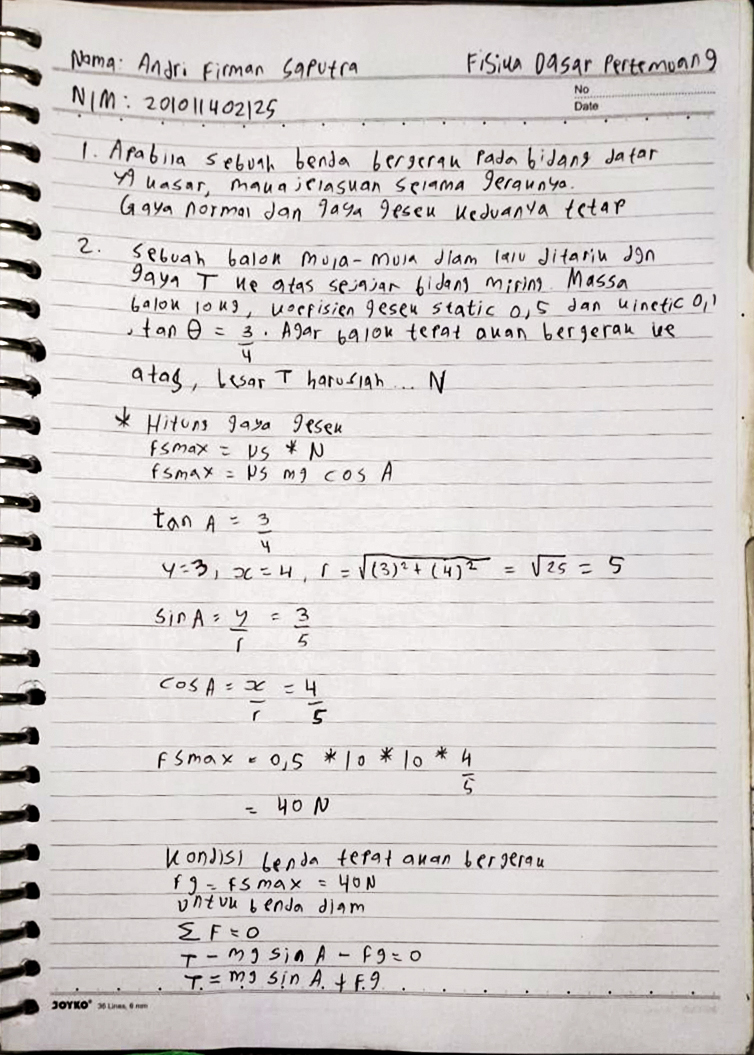 Nama: Andri Firman Saputra Fisika Dasar Pertemuan 9
NIM: 201011402125
No
Date
1. Apabila sebuah benda bergerak pada bidang datar
yg kasar, maka jelaskan selama geraknya.
Gaya normal dan gaya gesek keduanya tetap
2. Sebuah balok mula-mula diam lalu ditarik dgn
gaya T ke atas sejajar bidang miring. Massa
balok 10 kg, koefisien gesek static 0,5 dan kinetic 0,1
, tan θ = 3/4. Agar balok tepat akan bergerak ke
atas, besar T haruslah ... N
* Hitung gaya gesek
fsmax = μs * N
fsmax = μs mg cos A
tan A = 3/4
y=3, x=4, r = √(3)²+(4)² = √25 = 5
sin A = y/r = 3/5
cos A = x/r = 4/5
fsmax = 0,5 * 10 * 10 * 4/5
= 40 N
Kondisi benda tepat akan bergerak
fg = fsmax = 40N
untuk benda diam
Σ F = 0
T - mg sin A - fg = 0
T = mg sin A + fg
JOYKO® 36 Lines, 6 mm